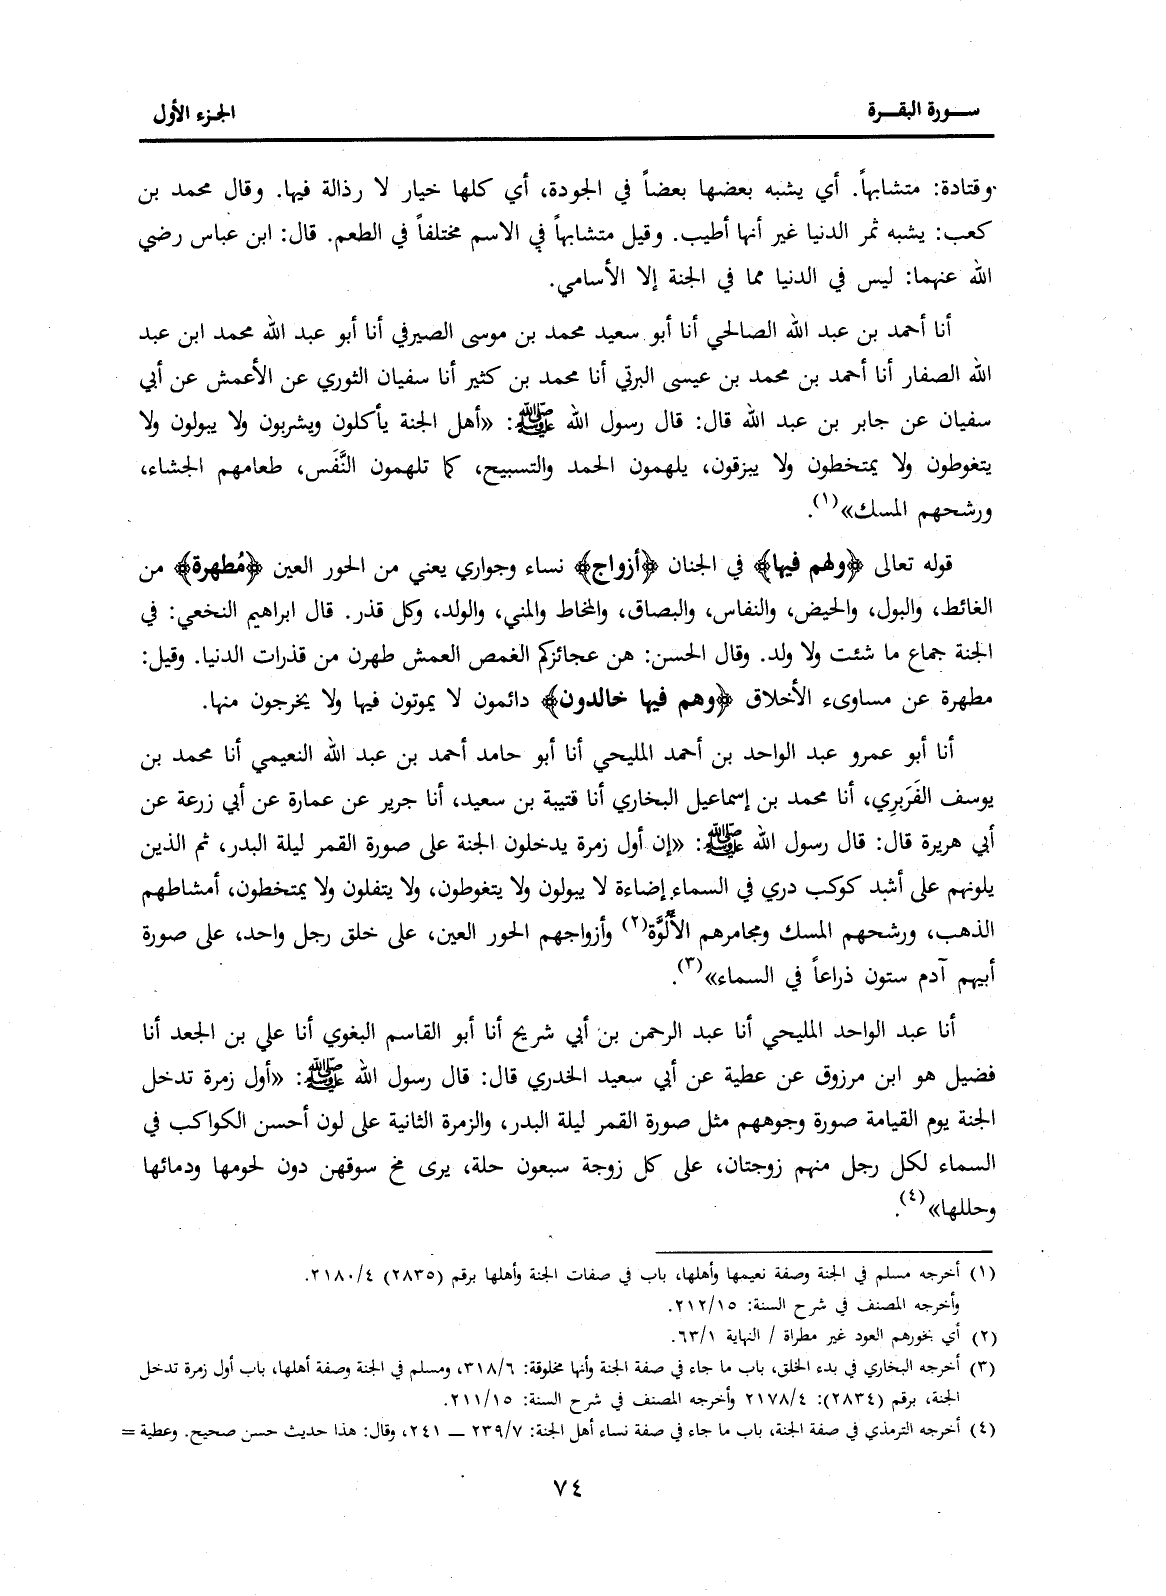 سورة البقرة
الجزء الأول
وقتادة: متشابهاً. أي يشبه بعضها بعضاً في الجودة، أي كلها خيار لا رذالة فيها. وقال محمد بن
كعب: يشبه ثمر الدنيا غير أنها أطيب. وقيل متشابهاً في الاسم مختلفاً في الطعم. قال: ابن عباس رضي
الله عنهما: ليس في الدنيا مما في الجنة إلا الأسامي.
أنا أحمد بن عبد الله الصالحي أنا أبو سعيد محمد بن موسى الصيرفي أنا أبو عبد الله محمد ابن عبد
الله الصفار أنا أحمد بن محمد بن عيسى البرتي أنا محمد بن كثير أنا سفيان الثوري عن الأعمش عن أبي
سفيان عن جابر بن عبد الله قال: قال رسول الله ﷺ: «أهل الجنة يأكلون ويشربون ولا يبولون ولا
يتغوطون ولا يمتخطون ولا يبزقون، يلهمون الحمد والتسبيح، كما تلهمون النَّفَس، طعامهم الجشاء،
ورشحهم المسك»(١).
قوله تعالى ﴿ولهم فيها﴾ في الجنان ﴿أزواج﴾ نساء وجواري يعني من الحور العين ﴿مُطهرة﴾ من
الغائط، والبول، والحيض، والنفاس، والبصاق، والمخاط والمني، والولد، وكل قذر. قال ابراهيم النخعي: في
الجنة جماع ما شئت ولا ولد. وقال الحسن: هن عجائزكم الغمص العمش طهرن من قذرات الدنيا. وقيل:
مطهرة عن مساوىء الأخلاق ﴿وهم فيها خالدون﴾ دائمون لا يموتون فيها ولا يخرجون منها.
أنا أبو عمرو عبد الواحد بن أحمد المليحي أنا أبو حامد أحمد بن عبد الله النعيمي أنا محمد بن
يوسف الفَرَبرِي، أنا محمد بن إسماعيل البخاري أنا قتيبة بن سعيد، أنا جرير عن عمارة عن أبي زرعة عن
أبي هريرة قال: قال رسول الله ﷺ: «إن أول زمرة يدخلون الجنة على صورة القمر ليلة البدر، ثم الذين
يلونهم على أشد كوكب دري في السماء إضاءة لا يبولون ولا يتغوطون، ولا يتفلون ولا يمتخطون، أمشاطهم
الذهب، ورشحهم المسك ومجامرهم الأَلُوَّة(٢) وأزواجهم الحور العين، على خلق رجل واحد، على صورة
أبيهم آدم ستون ذراعاً في السماء»(٣).
أنا عبد الواحد المليحي أنا عبد الرحمن بن أبي شريح أنا أبو القاسم البغوي أنا علي بن الجعد أنا
فضيل هو ابن مرزوق عن عطية عن أبي سعيد الخدري قال: قال رسول الله ﷺ: «أول زمرة تدخل
الجنة يوم القيامة صورة وجوههم مثل صورة القمر ليلة البدر، والزمرة الثانية على لون أحسن الكواكب في
السماء لكل رجل منهم زوجتان، على كل زوجة سبعون حلة، يرى مخ سوقهن دون لحومها ودمائها
وحللها»(٤).
(١) أخرجه مسلم في الجنة وصفة نعيمها وأهلها، باب في صفات الجنة وأهلها برقم (٢٨٣٥) ٢١٨٠/٤.
وأخرجه المصنف في شرح السنة: ٢١٢/١٥.
(٢) أي بخورهم العود غير مطراة / النهاية ٦٣/١.
(٣) أخرجه البخاري في بدء الخلق، باب ما جاء في صفة الجنة وأنها مخلوقة: ٣١٨/٦، ومسلم في الجنة وصفة أهلها، باب أول زمرة تدخل
الجنة، برقم (٢٨٣٤): ٢١٧٨/٤ وأخرجه المصنف في شرح السنة: ٢١١/١٥.
(٤) أخرجه الترمذي في صفة الجنة، باب ما جاء في صفة نساء أهل الجنة: ٢٣٩/٧ ــ ٢٤١، وقال: هذا حديث حسن صحيح. وعطية =
٧٤